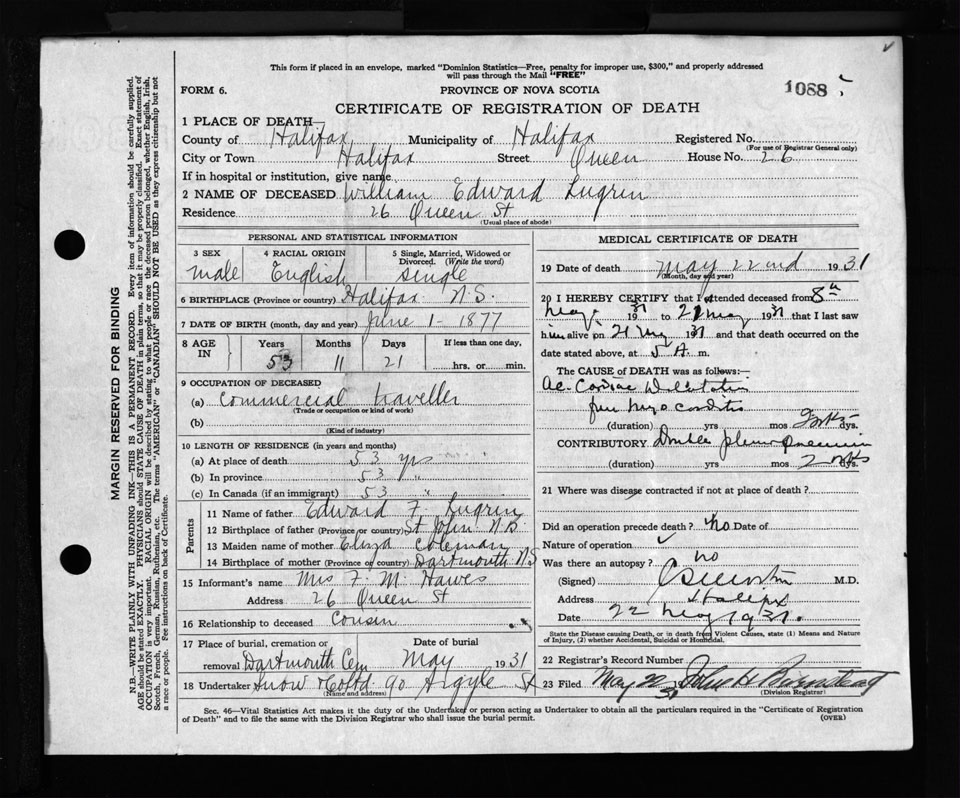 This form if placed in an envelope, marked "Dominion Statistics—Free, penalty for improper use, $300," and properly addressed
will pass through the Mail "FREE"
FORM 6. PROVINCE OF NOVA SCOTIA 1088
CERTIFICATE OF REGISTRATION OF DEATH
1 PLACE OF DEATH—
County of Halifax Municipality of Halifax Registered No.
(For use of Registrar General only)
City or Town Halifax Street Queen House No. 26
If in hospital or institution, give name
2 NAME OF DECEASED William Edward Lugrin
Residence 26 Queen St
(Usual place of abode)
PERSONAL AND STATISTICAL INFORMATION
3 SEX 4 RACIAL ORIGIN 5 Single, Married, Widowed or
Divorced. (Write the word)
male English single
6 BIRTHPLACE (Province or country) Halifax N.S.
7 DATE OF BIRTH (month, day and year) June 1 - 1877
8 AGE IN Years Months Days If less than one day,
53 11 21 hrs. or min.
9 OCCUPATION OF DECEASED
(a) commercial traveller
(Trade or occupation or kind of work)
(b)
(Kind of industry)
10 LENGTH OF RESIDENCE (in years and months)
(a) At place of death 53 yrs
(b) In province 53 "
(c) In Canada (if an immigrant) 53 "
Parents
11 Name of father Edward F. Lugrin
12 Birthplace of father (Province or country) St John N.B.
13 Maiden name of mother Eliza Coleman
14 Birthplace of mother (Province or country) Dartmouth N.S
15 Informant's name Mrs F. M. Hawes
Address 26 Queen St
16 Relationship to deceased Cousin
17 Place of burial, cremation or Date of burial
removal Dartmouth Cem May 1931
18 Undertaker Snow & Co Ltd 90 Argyle St
(Name and address)
MEDICAL CERTIFICATE OF DEATH
19 Date of death May 22nd 1931
(Month, day and year)
20 I HEREBY CERTIFY that I attended deceased from 8th
May 1931 to 21 May 1931 that I last saw
him alive on 21 May 1931 and that death occurred on the
date stated above, at 5 A. m.
The CAUSE OF DEATH was as follows:—
Ac. Cardiac Dilatation
(duration) yrs mos dys.
CONTRIBUTORY Double pleuro pneumonia
(duration) yrs mos 2 wks dys.
21 Where was disease contracted if not at place of death?
Did an operation precede death? No Date of
Nature of operation
Was there an autopsy? no
(Signed) M.D.
Address Halifax
Date 22 May 1931.
State the Disease causing Death, or in death from Violent Causes, state (1) Means and Nature
of Injury, (2) whether Accidental, Suicidal or Homicidal.
22 Registrar's Record Number
23 Filed May 22 31
(Division Registrar)
Sec. 46—Vital Statistics Act makes it the duty of the Undertaker or person acting as Undertaker to obtain all the particulars required in the "Certificate of Registration
of Death" and to file the same with the Division Registrar who shall issue the burial permit. (OVER)
MARGIN RESERVED FOR BINDING
N.B.—WRITE PLAINLY WITH UNFADING INK—THIS IS A PERMANENT RECORD. Every item of information should be carefully supplied.
AGE should be stated EXACTLY. PHYSICIANS should STATE CAUSE OF DEATH in plain terms, so that it may be properly classified. Exact statement of
OCCUPATION is very important. RACIAL ORIGIN will be described by stating to what people or race the deceased person belonged, whether English, Irish,
Scotch, French, German, Russian, Ruthenian, etc. The terms "AMERICAN" or "CANADIAN" SHOULD NOT BE USED as they express citizenship but not
a race or people. See instructions on back of Certificate.